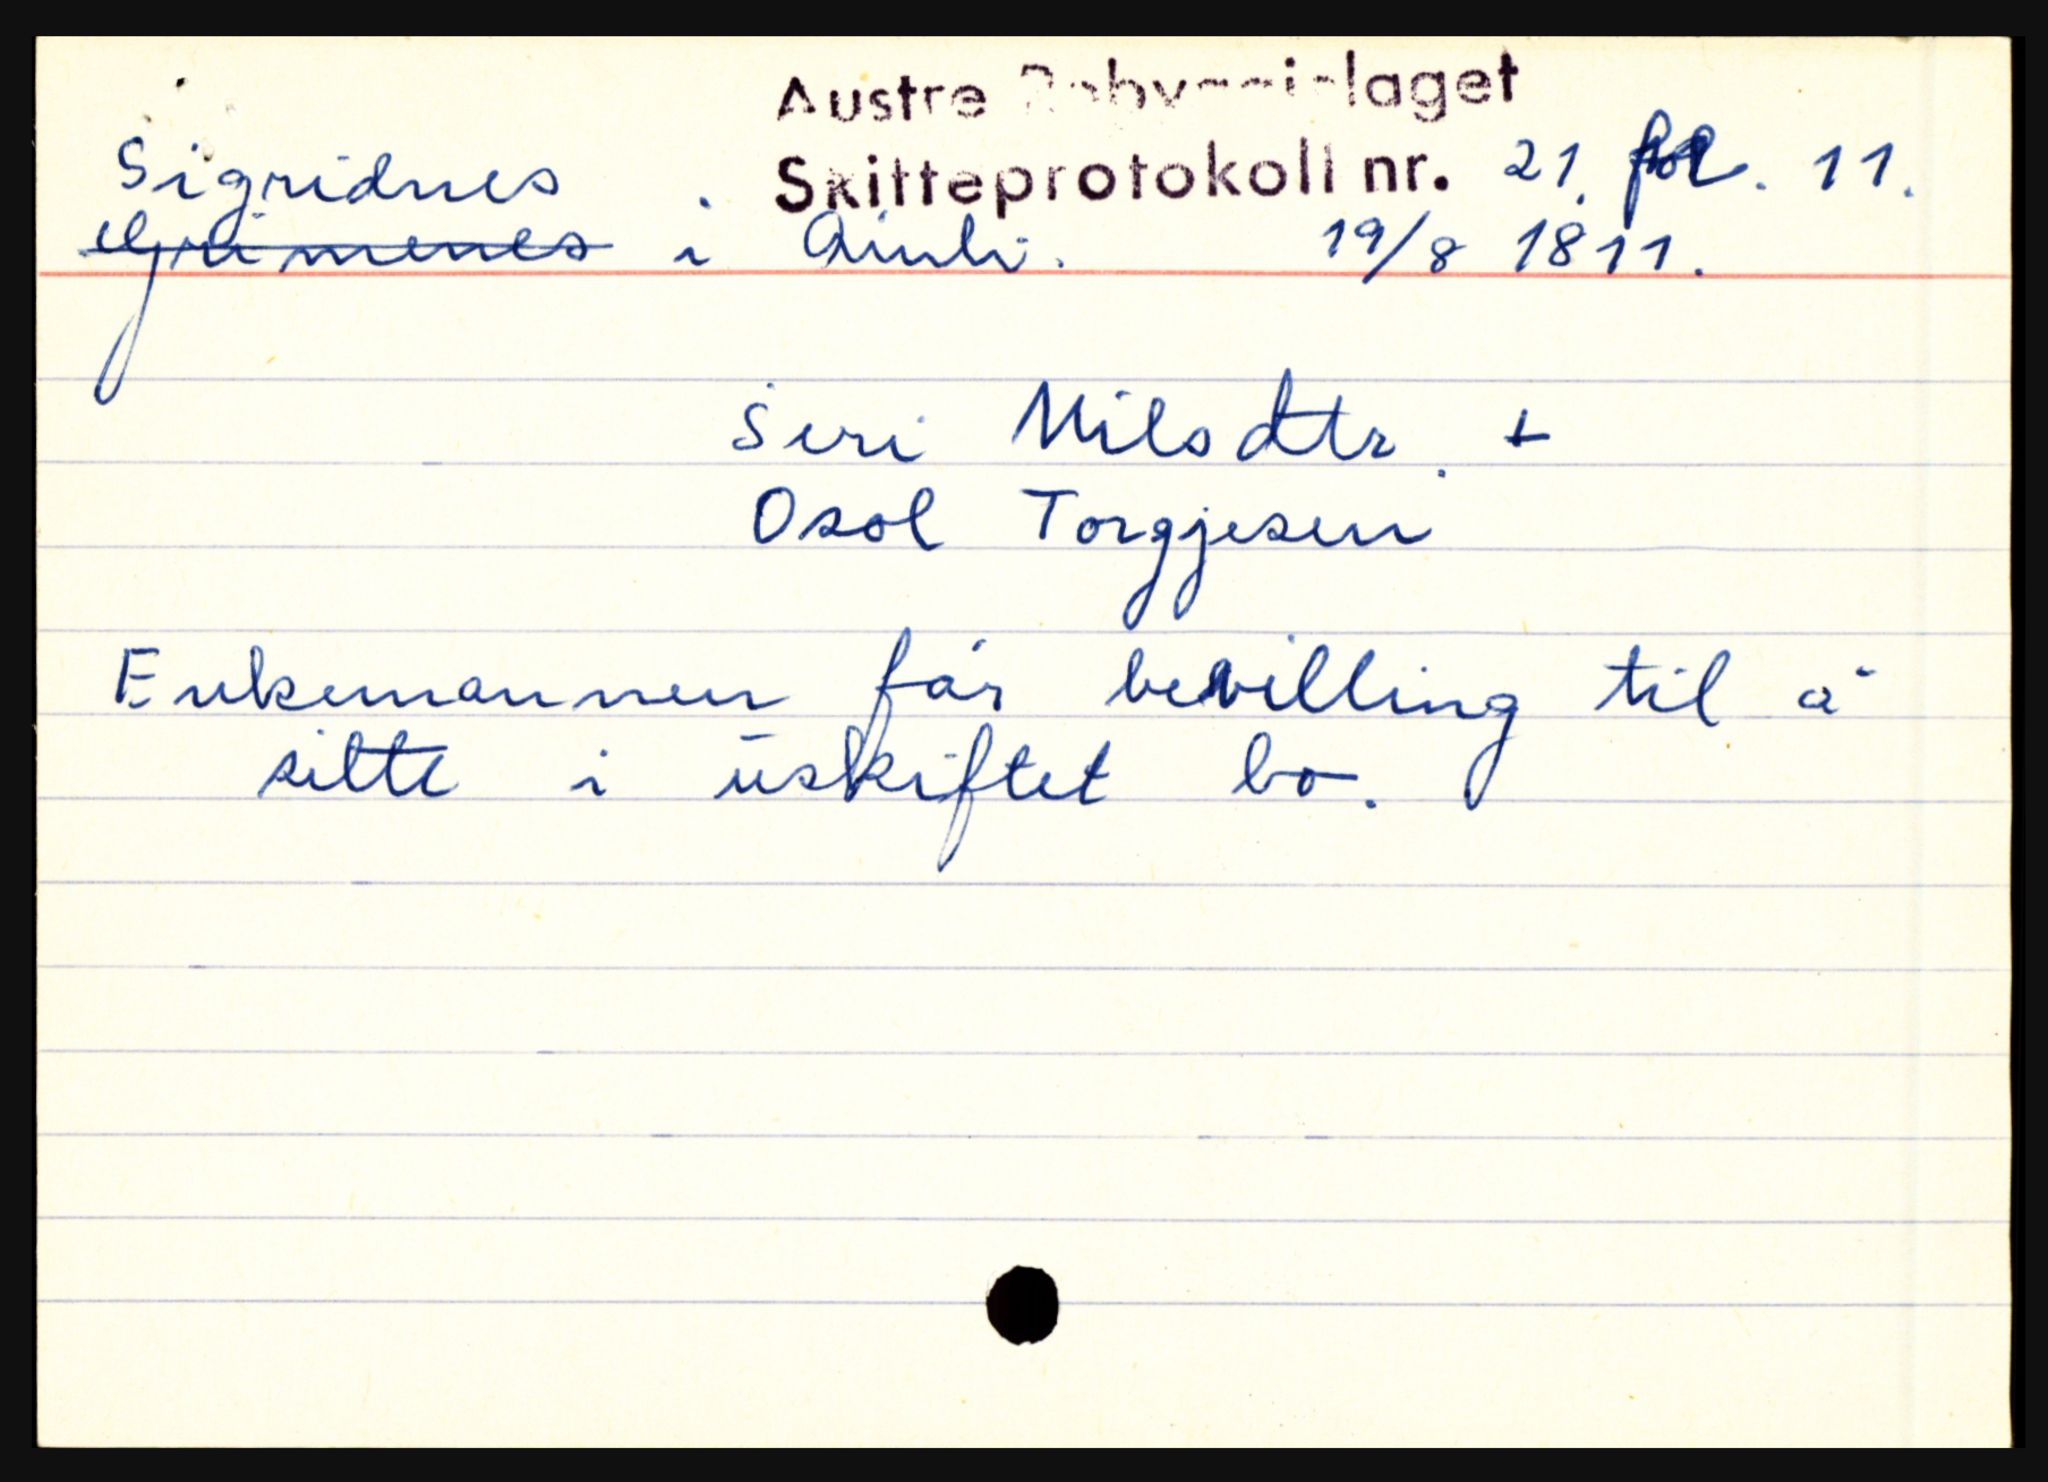 Austre Robyggjelaget
Skifteprotokoll nr. 21. fol. 11.
Sigridnes
~~Grimenes~~ i Åmli. 19/8 1811.
Siri Nilsdtr. +
Osol Torgjesen
Enkemannen får bevilling til å
sitte i uskiftet bo.